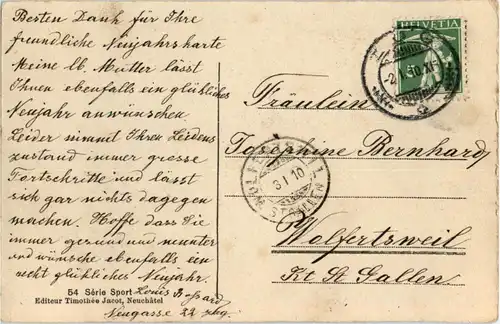 Besten Dank für Ihre
freundliche Neujahrskarte
Meine lb. Mutter lässt
Ihnen ebenfalls ein glückliches
Neujahr anwünschen.
Leider nimmt Ihren Leidens
zustand immer grosse
Fortschritte und lässt
sich gar nichts dagegen
machen. Hoffe dass Sie
immer gesund und munter
und wünsche ebenfalls ein
recht glückliches Neujahr.
Louis Bossard
Neugasse 22 Zug.
54 Série Sport
Editeur Timothée Jacot, Neuchâtel
HELVETIA
Fräulein
Josephine Bernhard
Wolfertsweil
Kt St Gallen
3.I.10